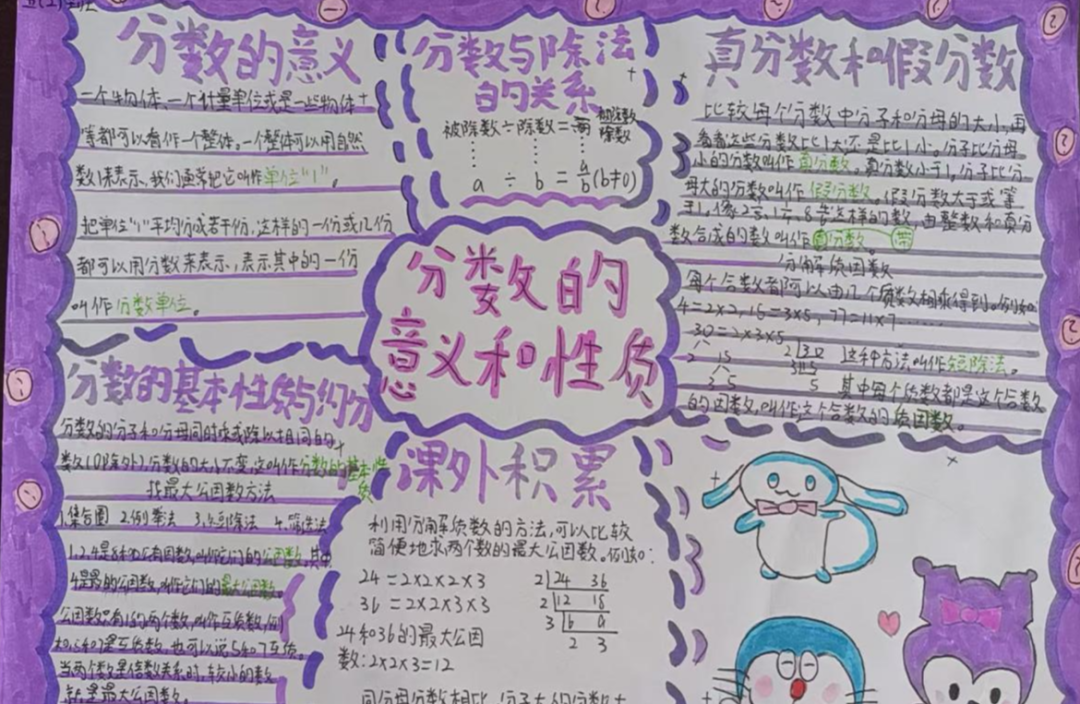 分数的意义
一个物体、一个计量单位或是一些物体
等都可以看作一个整体。一个整体可以用自然
数1来表示,我们通常把它叫作单位"1"。
把单位"1"平均分成若干份,这样的一份或几份
都可以用分数来表示,表示其中的一份
叫作分数单位。
分数与除法
的关系
被除数÷除数=被除数/除数
a ÷ b = a/b (b≠0)
真分数和假分数
比较每个分数中分子和分母的大小,再
看看这些分数比1大还是比1小。分子比分母
小的分数叫作真分数。真分数小于1,分子比分
母大的分数叫作假分数。假分数大于或等
于1,像
这样的数,由整数和真分
数合成的数叫作
分数 带
分解质因数
每个合数都可以由几个质数相乘得到。例如:
4=2×2,15=3×5,77=11×7……
30=2×3×5
2 15
3 5
2 30
3 15
5
这种方法叫作短除法。
其中每个质数都是这个合数
的因数,叫作这个合数的质因数。
分数的
意义和性质
分数的基本性质与约分
分数的分子和分母同时乘或除以相同的
数(0除外)分数的大小不变,这叫作分数的基本性
质
找最大公因数方法
1.集合圈 2.列举法 3.短除法 4.
1、2、4是8和
公有因数,叫作它们的公因数。其中
4是最
的公因数,叫作它们的最大公因数。
公因数只有1的两个数,叫作互质数,例
如,5和7是互质数,也可以说5和7互质。
当两个数是倍数关系时,较小的数
就是最大公因数。
课外积累
利用分解质因数的方法,可以比较
简便地求两个数的最大公因数。例如:
24=2×2×2×3
36=2×2×3×3
2 24 36
2 12 18
3 6 9
2 3
24和36的最大公因
数:2×2×3=12
同分母分数相比,分子大的分数大